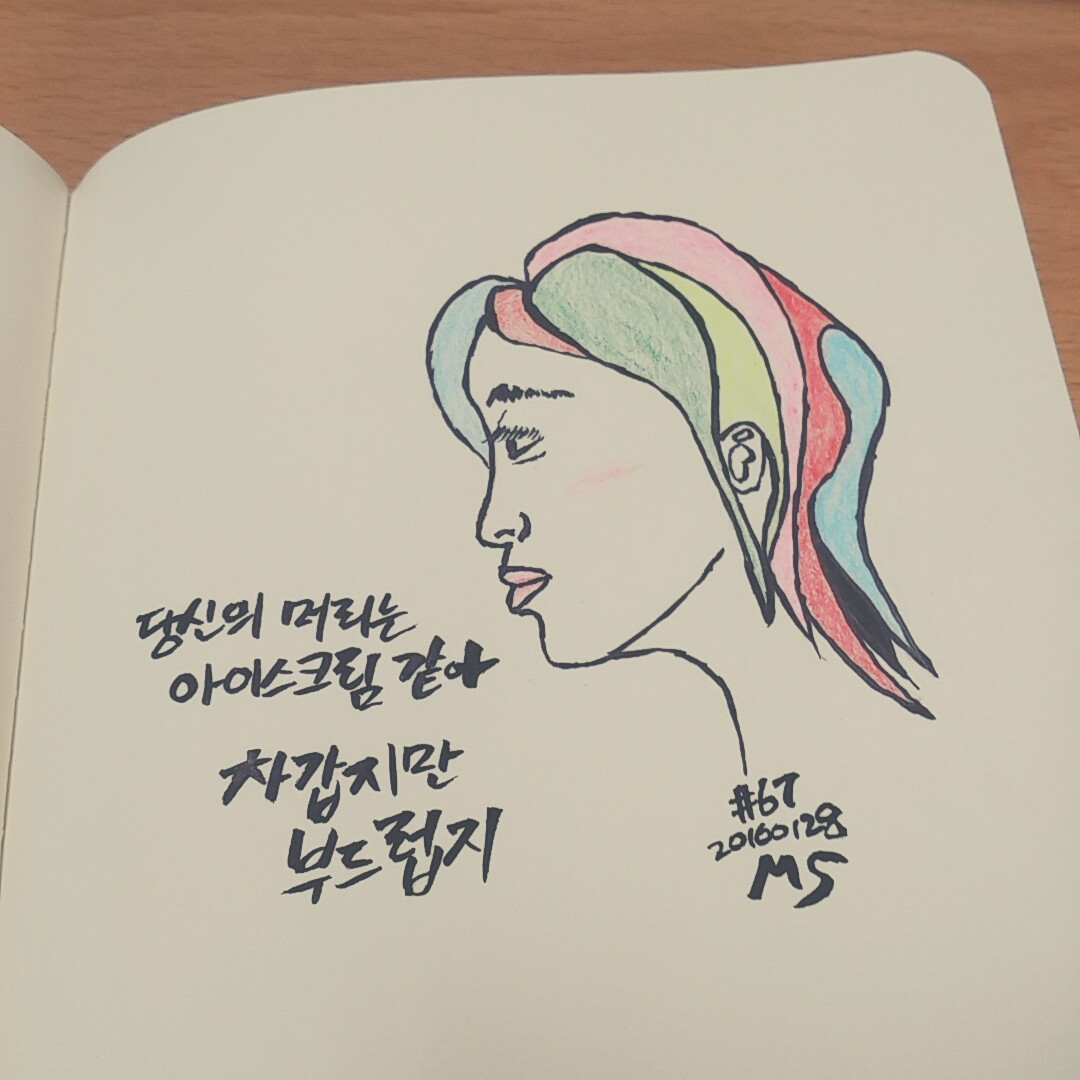 당신의 머리는
아이스크림 같아
차갑지만
부드럽지
#67
20160128
MS